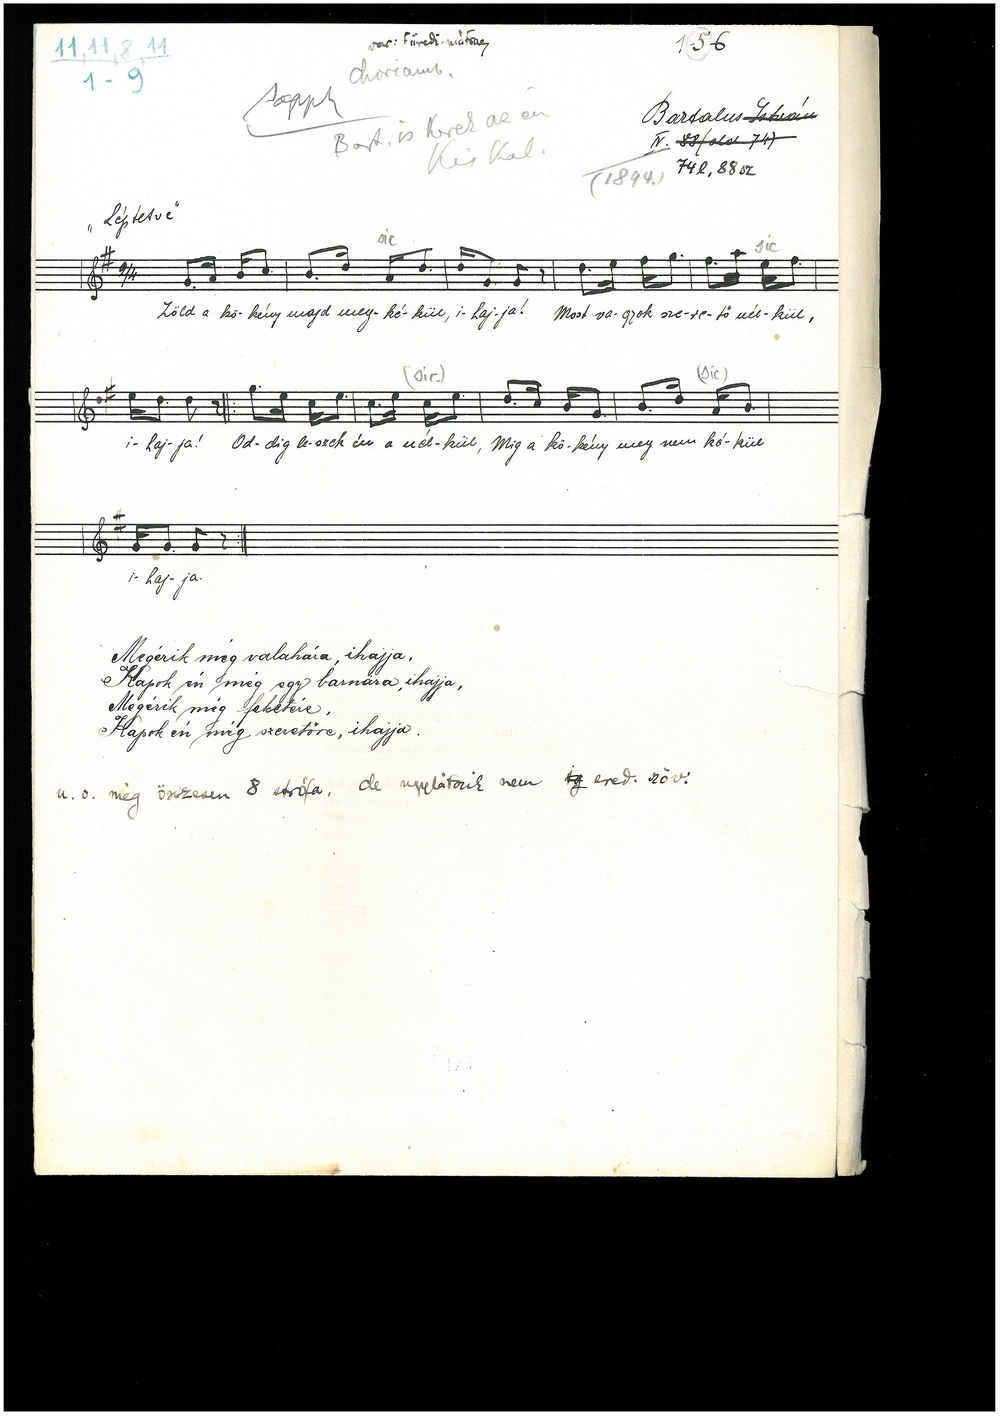 11, 11, 8, 11
1-9
var: Füredi
choriamb.
156
Bart. is Kerek az én
Kis Kal.
Bartalus István
IV. 88 (old 74)
(1894.) 74 l, 88 sz
"Léptetve"
sic sic
9/4
Zöld a kö-kény majd meg-ké-kül, i-haj-ja! Most va-gyok sze-re-tő nél-kül,
(sic.) (sic)
i-haj-ja! Od-dig le-szek én a nél-kül, Mig a kö-kény meg nem ké-kül
i-haj-ja.
Megérik még valahára, ihajja,
Kapok én még egy barnára, ihajja,
Megérik még feketére,
Kapok én még szeretőre, ihajja.
u. o. még összesen 8 strófa, de úgylátszik nem ered. szöv.